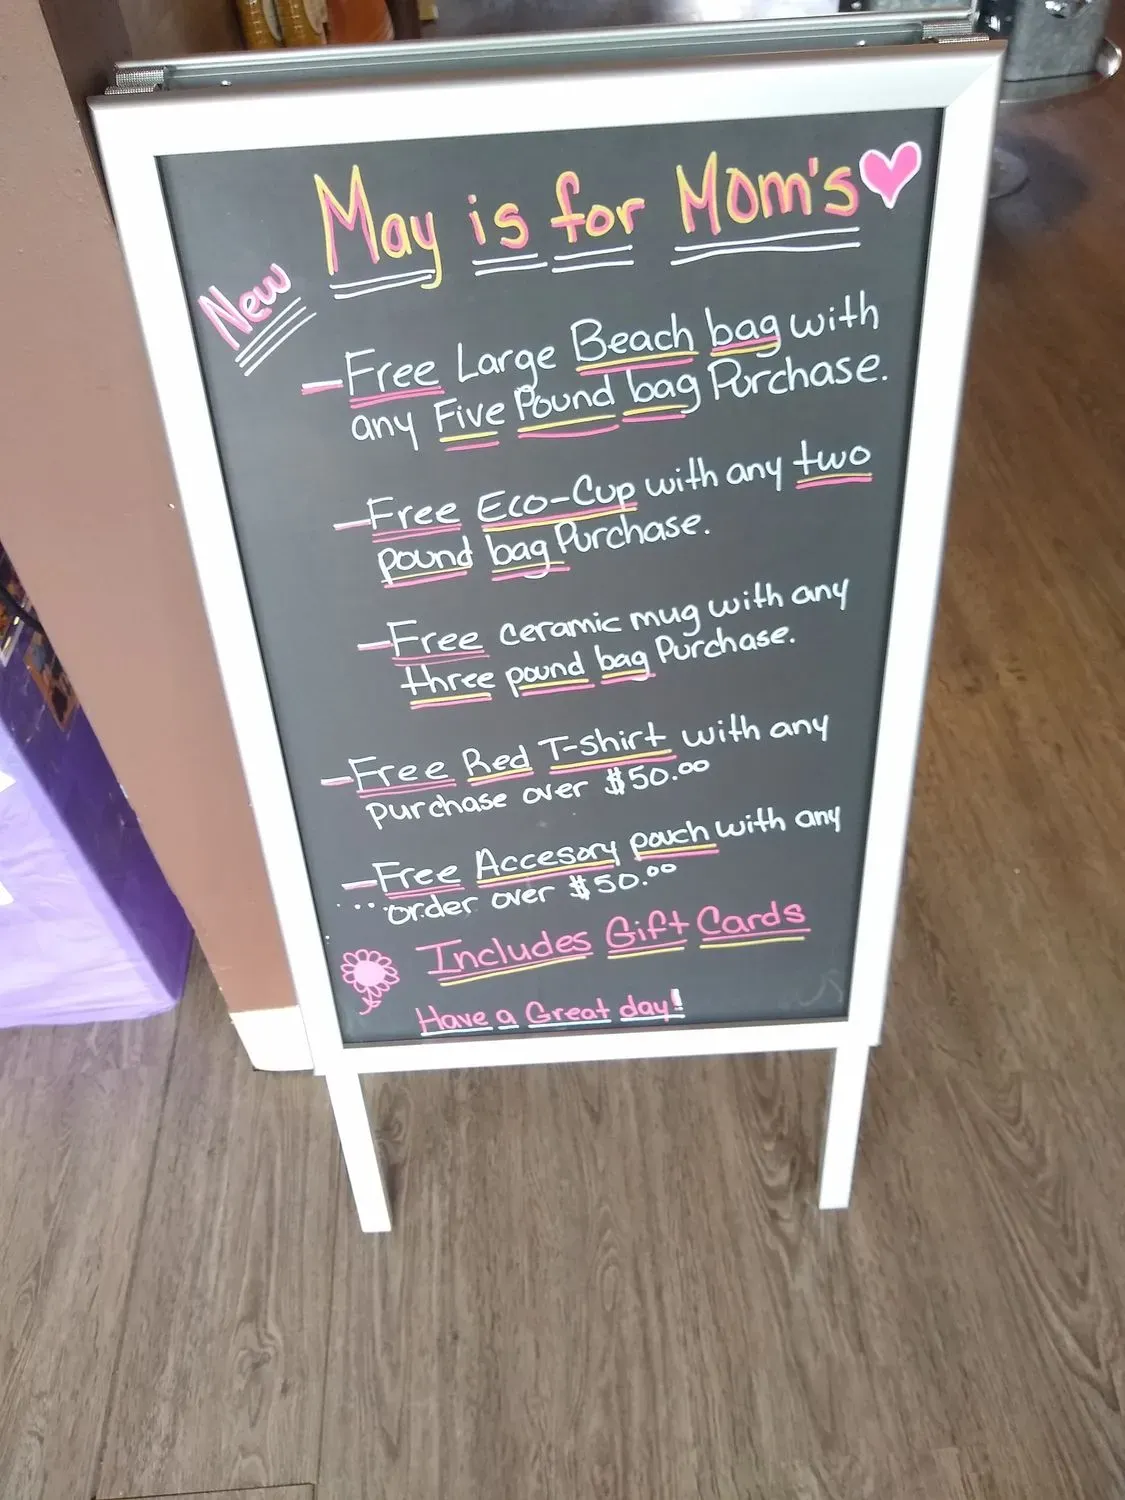 May is for Mom's
New
-Free Large Beach bag with
any Five Pound bag Purchase.
-Free Eco-Cup with any two
pound bag Purchase.
-Free ceramic mug with any
three pound bag Purchase.
-Free Red T-shirt with any
purchase over $50.00
-Free Accesory pouch with any
... order over $50.00
Includes Gift Cards
Have a Great day!